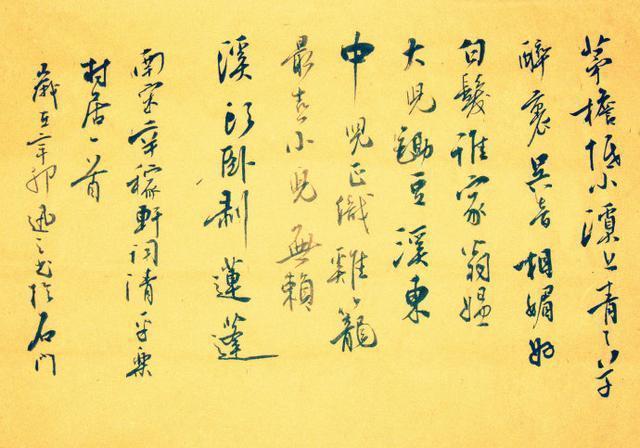 茅檐低小溪上青々草
醉裏吳音相媚好
白髮誰家翁媼
大兒鋤豆溪東
中兒正織雞籠
最喜小兒無賴
溪頭卧剥蓮蓬
南宋辛稼軒詞清平樂
村居一首
歲在辛卯迅之书於石门